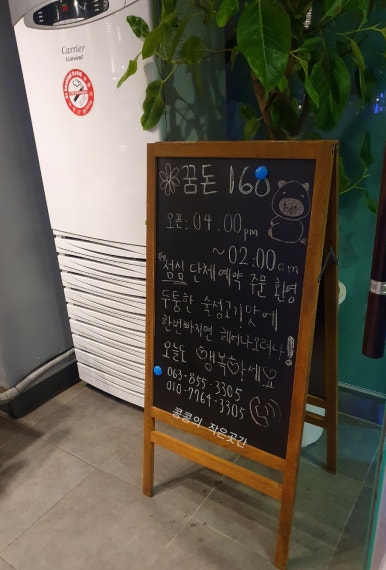 Carrier
꿈돈 160
오픈: 04:00pm
~ 02:00a.m
점심 단체예약 주문 환영
두툼한 숙성고기맛에
한번빠지면 헤어나오려나!
오늘도 행복하세요
063-855-3305
010-7769-3305
콩콩의 작은곳간